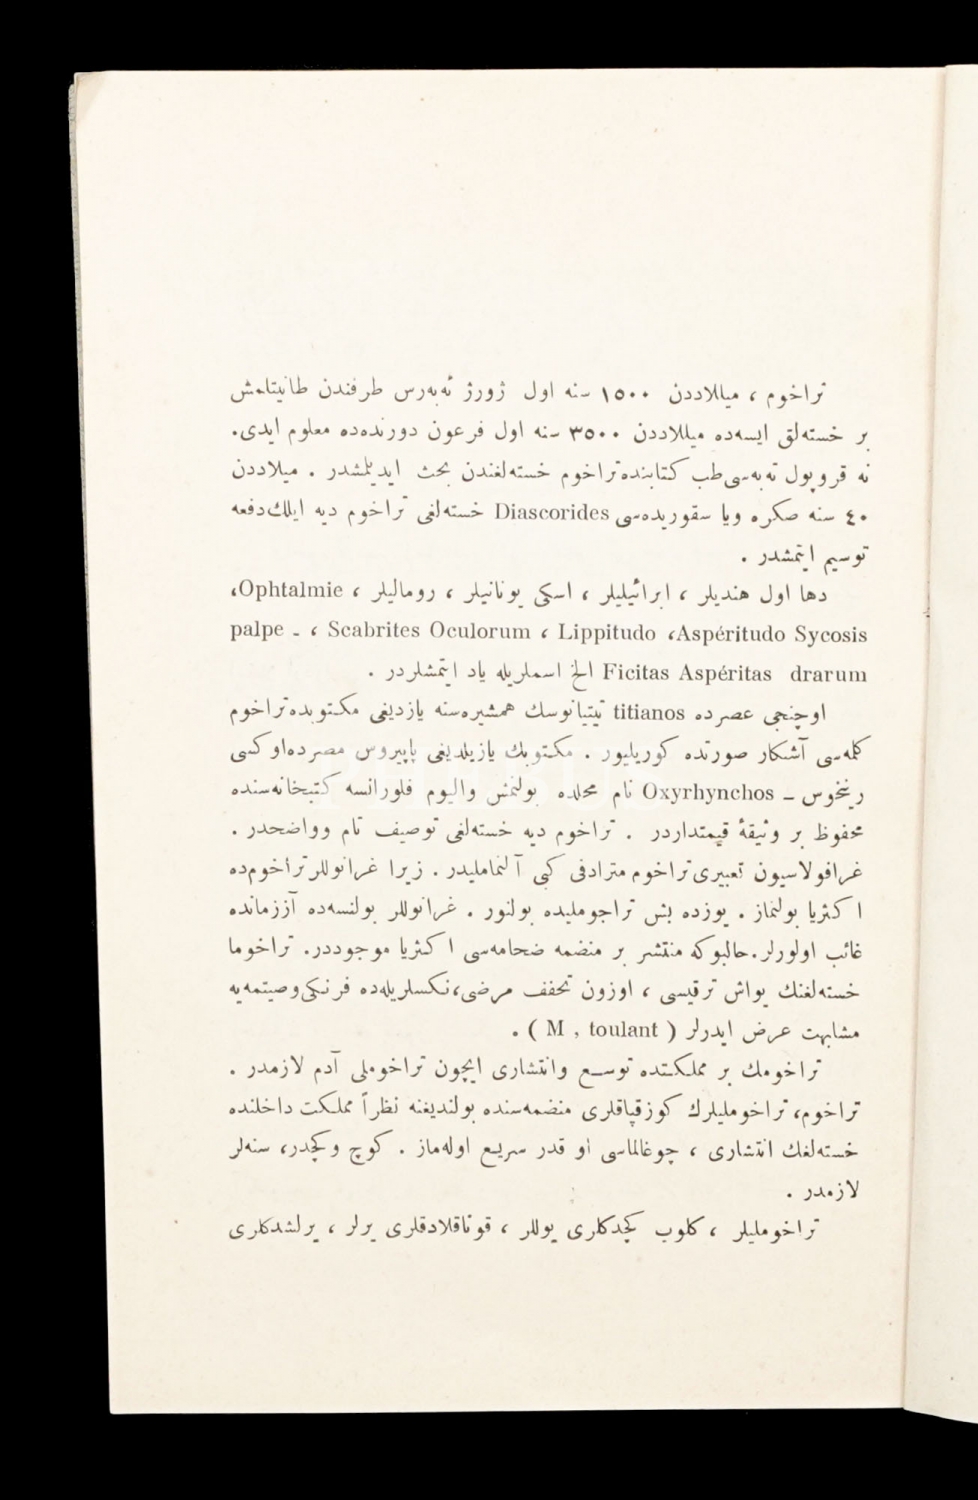 تراخوم ، ميلاددن ١٥٠٠ سنه اول ژورژ ئه‌به‌رس طرفندن طانيتلمش
بر خسته‌لق ايسه‌ده ميللاددن ٣٥٠٠ سنه اول فرعون دورنده‌ده معلوم ايدى.
نه قروپول تپه‌سى طب كتابنده تراخوم خسته‌لغندن بحث ايديلمشدر . ميلاددن
٤٠ سنه صكره ويا سقوريده‌سى Diascorides خسته‌لغى تراخوم ديه ايلك دفعه
توسيم ايتمشدر .
دها اول هنديلر ، ابرائيليلر ، اسكى يونانيلر ، رومالیلر ، Ophtalmie،
palpe ـ ، Scabrites Oculorum ، Lippitudo ،Aspéritudo Sycosis
Ficitas Aspéritas drarum الخ اسملريله ياد ايتمشلردر .
اوچنجى عصرده titianos تيتيانوسك همشيره‌سنه يازديغى مكتوبده تراخوم
كلمه‌سى آشكار صورتده كوريليور . مكتوبك يازيلديغى پاپيروس مصرده اوكسى
رينخوس ـ Oxyrhynchos نام محلده بولنمش واليوم فلورانسه كتبخانه‌سنده
محفوظ بر وثيقهٔ قيمتداردر . تراخوم ديه خسته‌لغى توصيف تام وواضحدر .
غرافولاسيون تعبيرى تراخوم مترادفى كبى آلنماملیدر . زيرا غرانوللر تراخوم‌ده
اكثريا بولنماز . يوزده بش تراجومليده بولنور . غرانوللر بولنسه‌ده آززمانده
غائب اولورلر.حالبوكه منتشر بر منضمه ضحامه‌سى اكثريا موجوددر. تراخوما
خسته‌لغنك يواش ترقيسى ، اوزون تخفف مرضى،نكسلريله‌ده فرنكى وصيتمه‌يه
مشابهت عرض ايدرلر ( M , toulant ) .
تراخومك بر مملكتده توسع وانتشارى ايچون تراخوملى آدم لازمدر .
تراخوم، تراخومليلرك كوزقپاقلرى منضمه‌سنده بولنديغنه نظراً مملكت داخلنده
خسته‌لغك انتشارى ، چوغالماسى او قدر سريع اوله‌ماز . كوچ وكجدر، سنه‌لر
لازمدر .
تراخومليلر ، كلوب كچدكلرى يوللر ، قوناقلادقلرى يرلر ، يرلشدكلرى